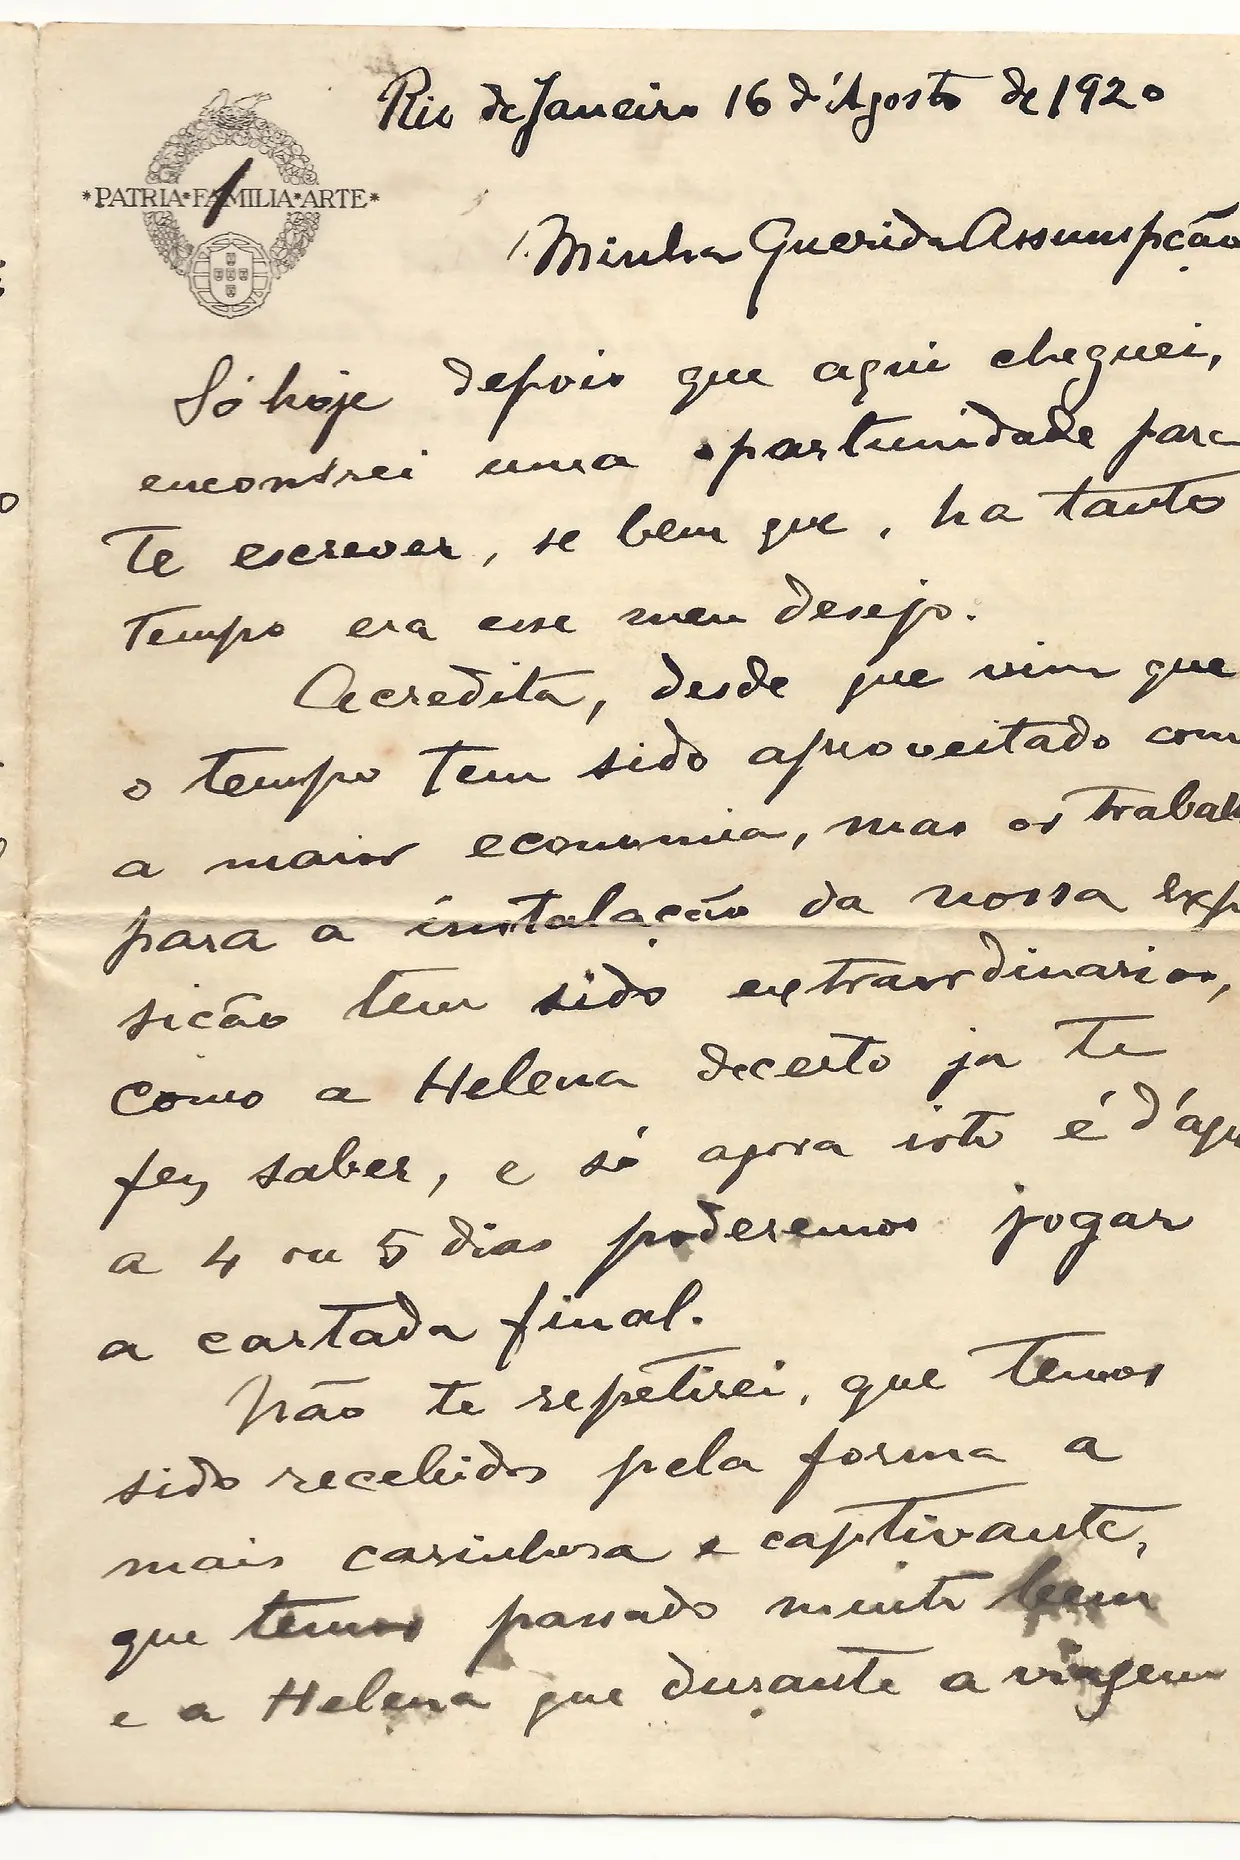 Rio de Janeiro 16 d'Agosto de 1920
*PATRIA*FAMILIA*ARTE*
1
Minha Querida Assumpção
Só hoje depois que aqui cheguei,
encontrei uma opportunidade para
te escrever, se bem que, ha tanto
tempo era esse meu desejo.
Acredita, desde que vim que
o tempo tem sido aproveitado com
a maior economia, mas os trabal
para a instalação da nossa Exp
sição tem sido extraordinarios,
como a Helena decerto ja te
fez saber, e só agora isto é d'aqu
a 4 ou 5 dias poderemos jogar
a cartada final.
Não te repetirei, que temos
sido recebidos pela forma a
mais carinhosa e captivante,
que temos passado muito bem
e a Helena que durante a viagem